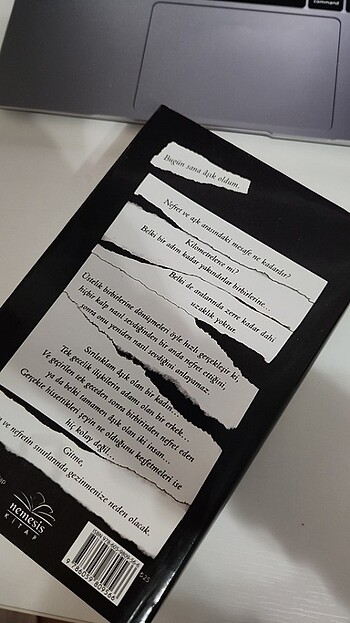 command
Bugün sana âşık oldum.
Nefret ve aşk arasındaki mesafe ne kadardır?
Kilometrelerce mi?
Belki bir adım kadar yakındırlar birbirlerine...
Belki de aralarında zerre kadar dahi
uzaklık yoktur.
Üstelik birbirlerine dönüşmeleri öyle hızlı gerçekleşir ki,
hiçbir kalp nasıl sevdiğinden bir anda nefret ettiğini,
sonra onu yeniden nasıl sevdiğini anlayamaz.
Sırılsıklam âşık olan bir kadın...
Tek gecelik ilişkilerin adamı olan bir erkek...
Ve geçirilen tek geceden sonra birbirinden nefret eden
ya da belki tamamen âşık olan iki insan...
Gerçekte hissettikleri şeyin ne olduğunu keşfetmeleri ise
hiç kolay değil...
Gitme,
ve nefretin sınırlarında gezinmenize neden olacak.
nemesis
KİTAP
9 786059 809566